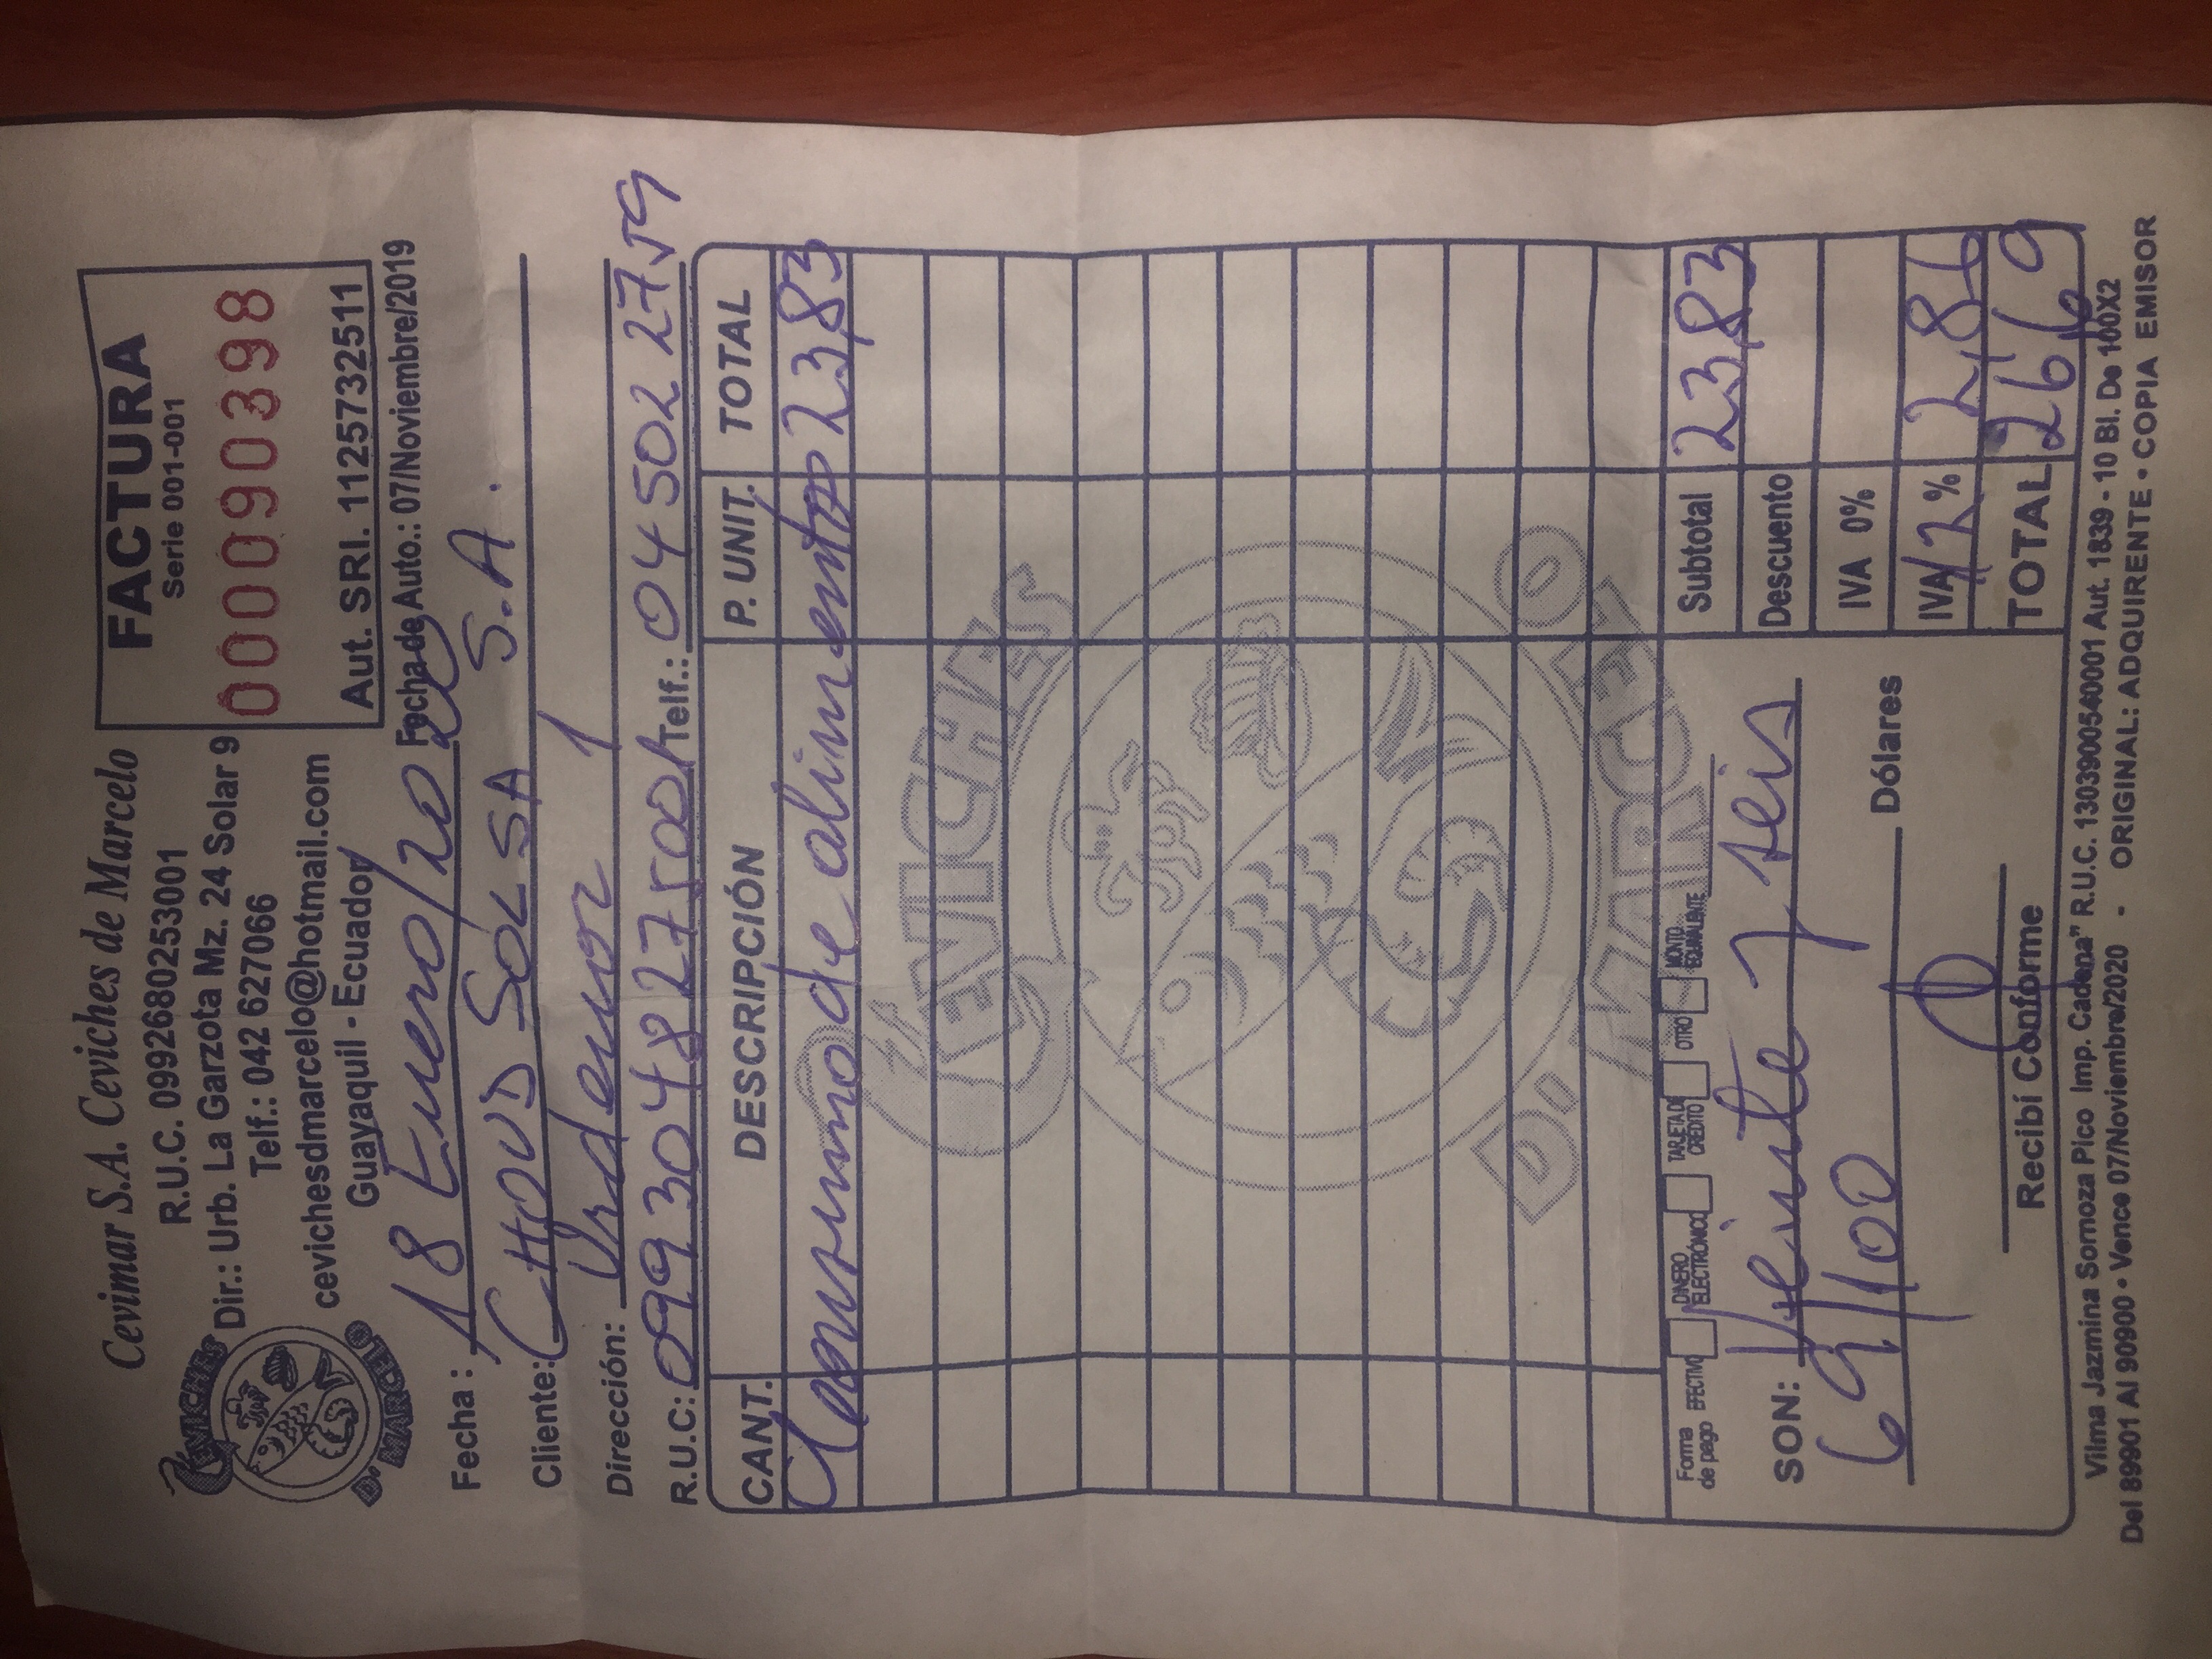 Cevimar S.A. Ceviches de Marcelo
R.U.C. 0992680253001
Dir.: Urb. La Garzota Mz. 24 Solar 9
Telf.: 042 627066
cevichesdmarcelo@hotmail.com
Guayaquil - Ecuador
CEVICHES
D' MARCELO
FACTURA
Serie 001-001
000090398
Aut. SRI. 1125732511
Fecha de Auto.: 07/Noviembre/2019
Fecha: 18 Enero/2020
Cliente: CHOUD SOLSA S.A.
Dirección: Urdenor 1
R.U.C: 0993048275001 Telf.: 0450222759
CANT. DESCRIPCIÓN P. UNIT. TOTAL
Consumo de alimentos 23,83
CEVICHES
D' MARCELO
Forma de pago EFECTIVO DINERO ELECTRÓNICO TARJETA DE CRÉDITO OTRO MONTO EQUIVALENTE
Subtotal 23,83
SON: Veinte y seis
Descuento
69/100 Dólares
IVA 0%
IVA 12% 2,86
Recibí Conforme
TOTAL 26,69
Vilma Jazmina Sornoza Pico Imp. Cadena" R.U.C. 1303900540001 Aut. 1839 - 10 Bl. De 100X2
Del 89901 Al 90900 • Vence 07/Noviembre/2020 - ORIGINAL: ADQUIRENTE • COPIA EMISOR